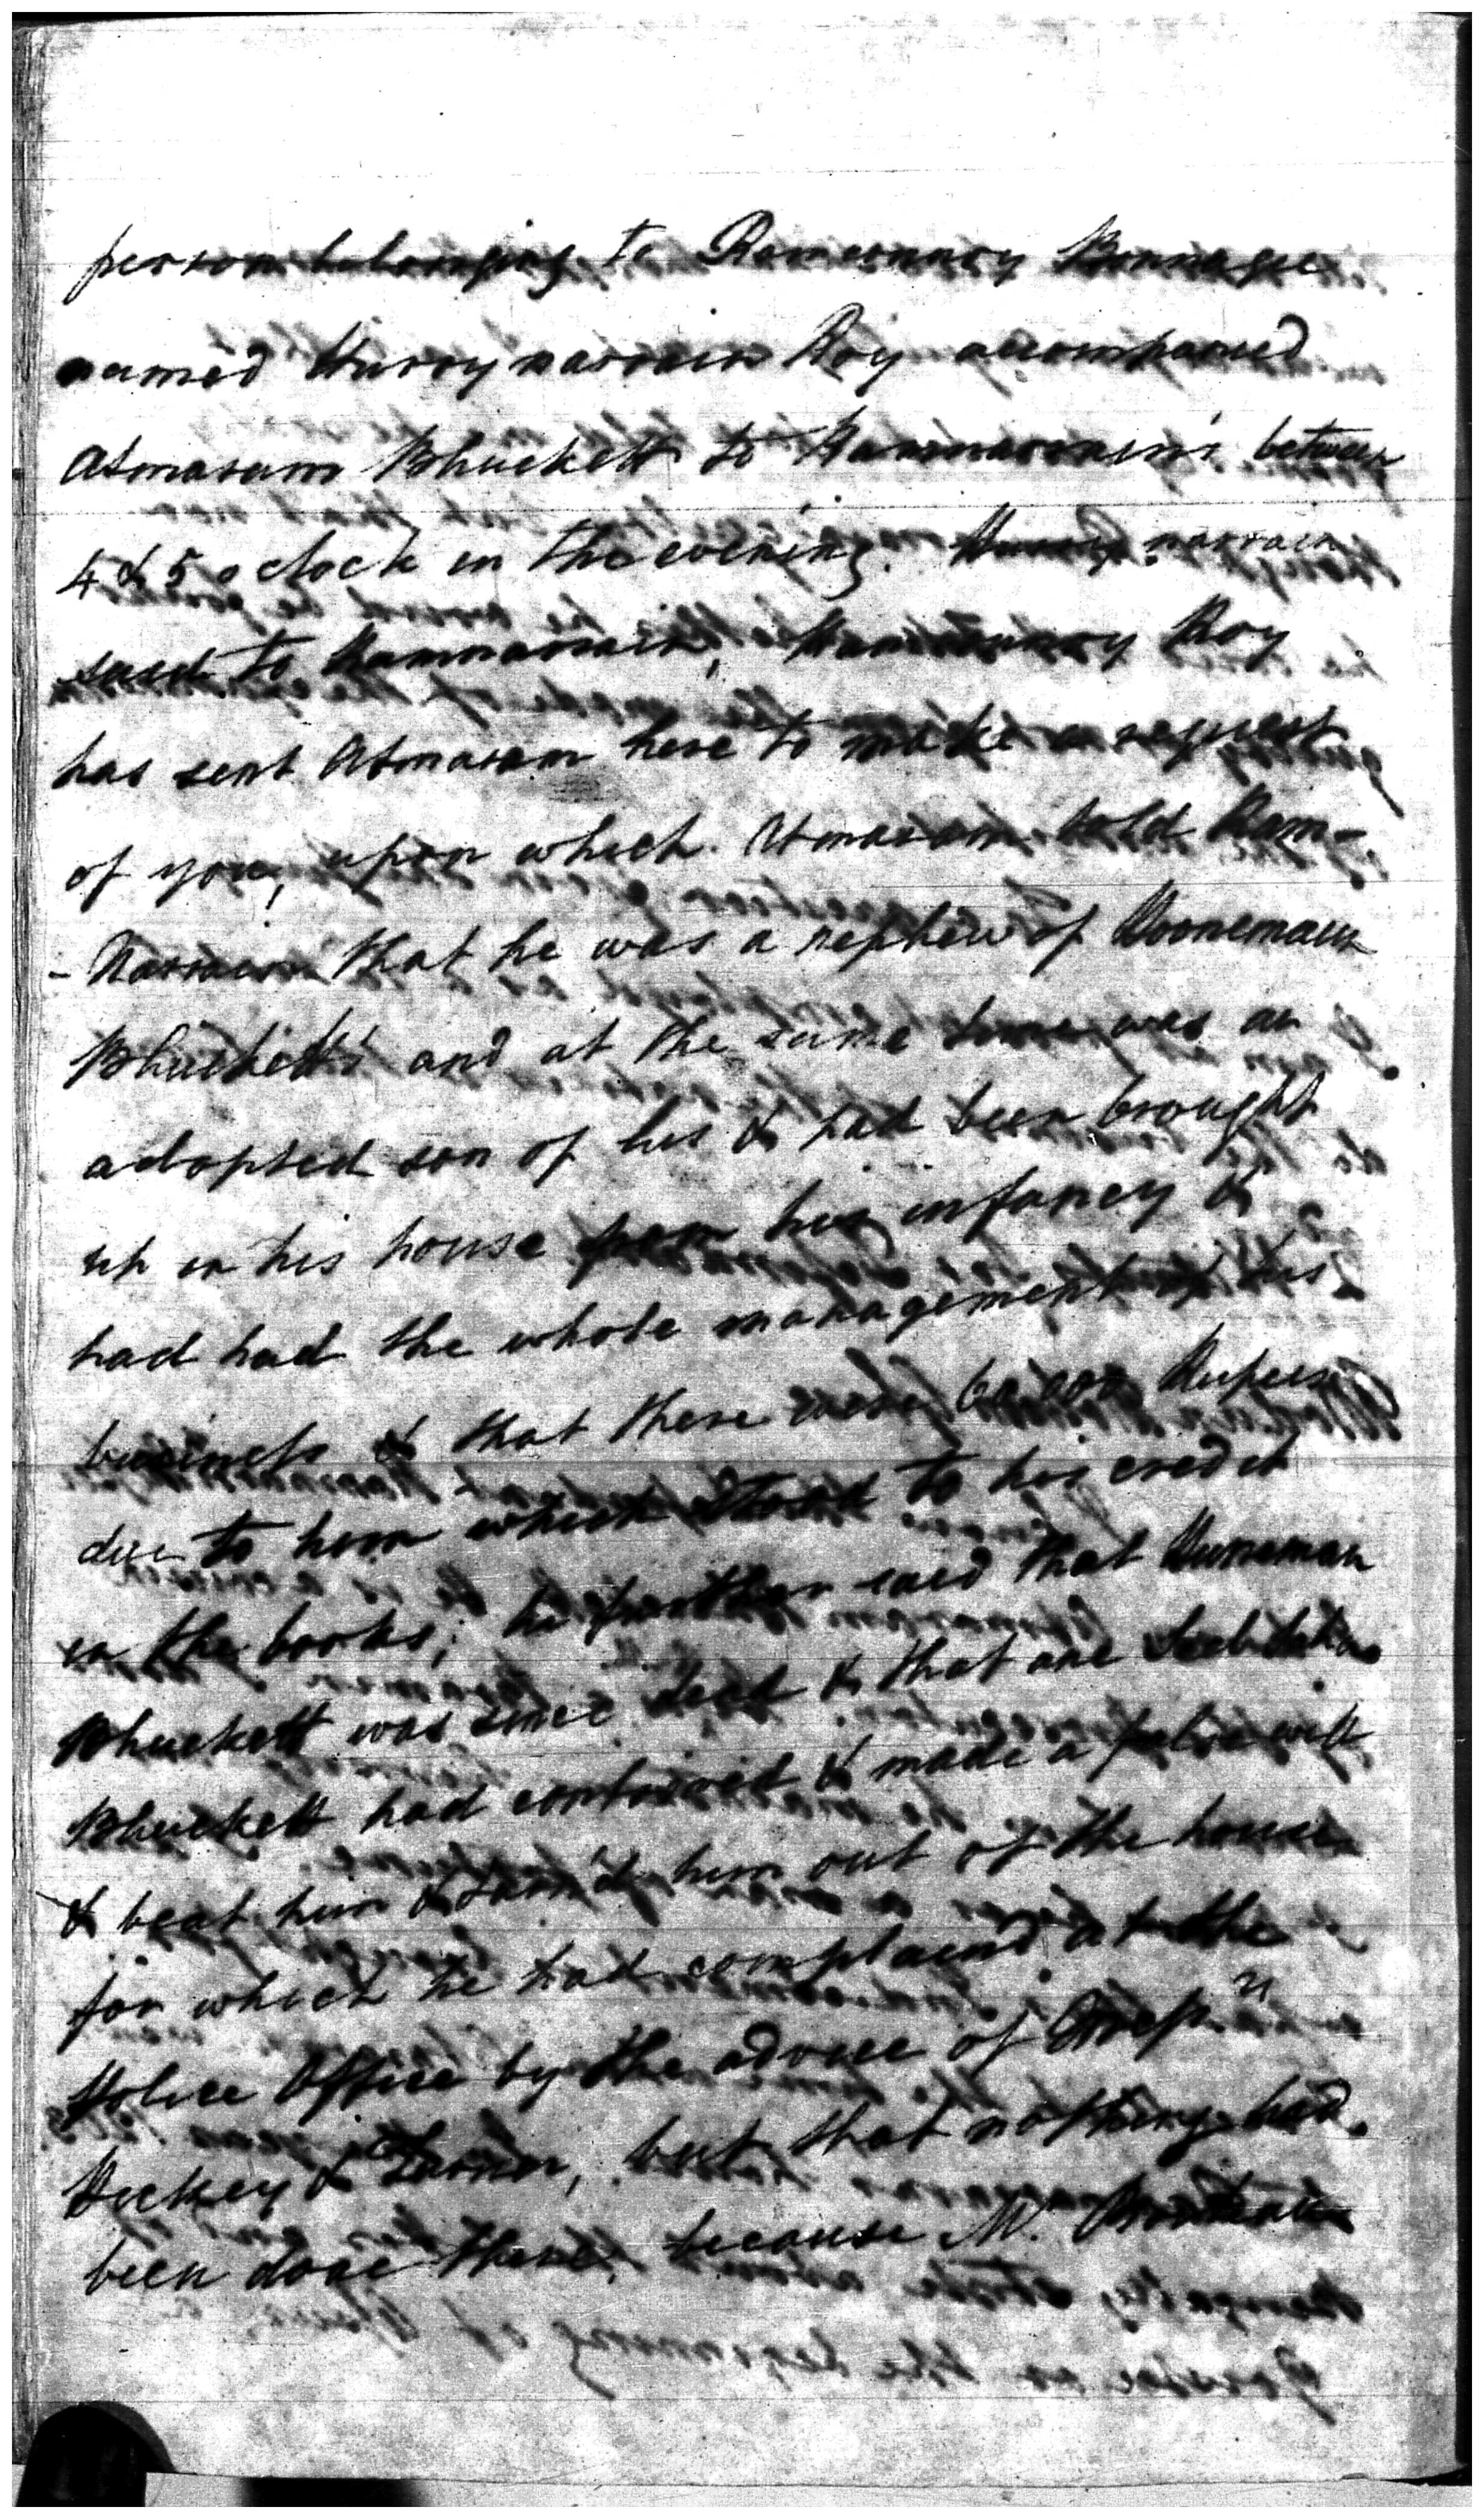 person belonging to Ramsunnoy Bonnagee
named Hurrynarrain Roy accompanied
Atmaram Bhuckett to Ramnarrain's between
4 & 5 o clock in the evening. Hurry narrain
said to Ramnarrain, Ramsunnoy Roy
has sent Atmaram here to make a request
of you, upon which Atmaram told Ram-
- Narrain that he was a nephew of Hoonemaun
Bhucketts and at the same time was an
adopted son of his & had been brought
up in his house from his infancy &
had had the whole management of his
business & that there were 60,000 Rupees
due to him which stood to his credit
in the books; he further said that Hunemaun
Bhuckett was since dead & that one
Bhuckett had contrived & made a false will
& beat him & turn'd him out of the house
for which he had complaind at the
Police Office by the advice of
Hickey & Turner, but that nothing had
been done there, because Mr.